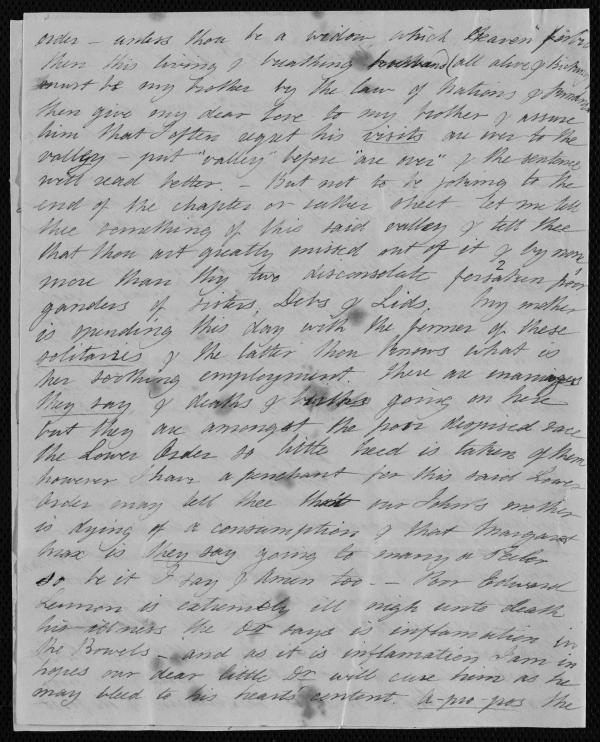 order – unless thou be a widow which Heaven forbid
then this living & breathing husband (all alive &
must be my brother by the law of Nations &
then give my dear love to my brother & assure
him that I often regret his visits are over to the
valley – put "valley" before "are over" & the sentence
will read better. – But not to be joking to the
end of the chapter or rather sheet let me tell
thee something of this said valley & tell thee
that thou art greatly missed out of it & by none
more than thy two disconsolate forsaken
ganders of sisters, Debs & Lids. My mother
is spending this day with the former of these
solitaries & the latter thou knows what is
her soothing employment. There are marriages
they say, & deaths & births going on here
but they are amongst the poor despised race
the Lower Order so little heed is taken of them
however I have a penchant for this said Lower
Order may tell thee that our John's mother
is dying of a consumption & that Margaret
is they say going to marry a Peeler
so be it I say & Amen too. – Poor Edward
Lennon is extremely ill nigh unto death
his illness the Dr says is inflamation in
the Bowels – and as it is inflamation I am in
hopes our dear little Dr will cure him as he
may bleed to his hearts content. a-pro-pos the